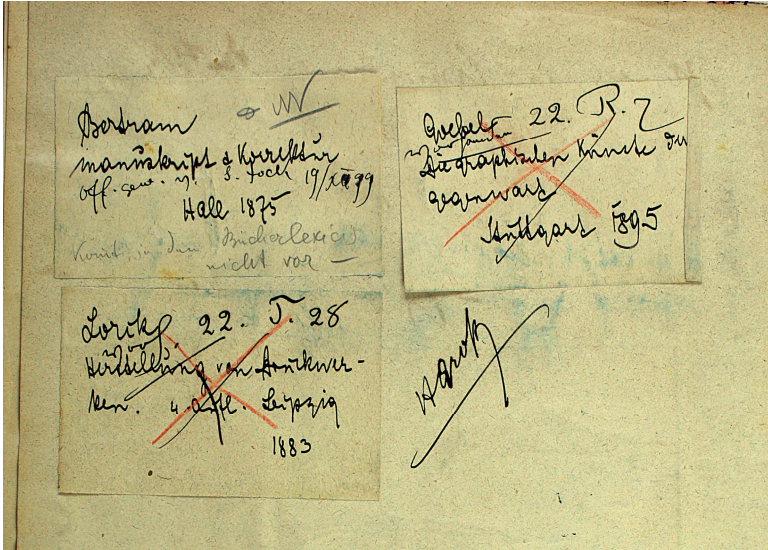 Bertram
manuskript & Korrektur
Off. gew. v. S. Fock 19/XII 99
Hall 1875
Komt in den Bücherlexicis
nicht vor —
Goebel, 22. R. 7
vorhanden
Die graphischen Künste der
gegenwart
Stuttgart 1895
Lorck, 22. T. 28
Herstellung von Druckwer-
ken. 4. aufl. Leipzig
1883